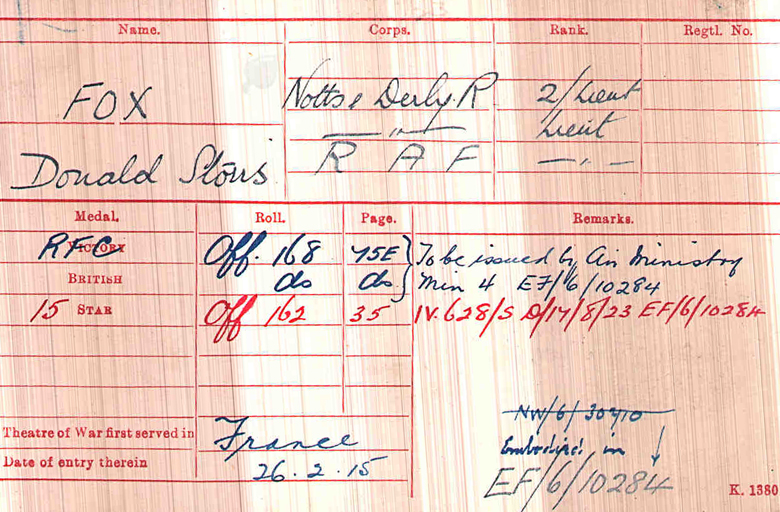 Name. Corps. Rank. Regtl. No.
FOX Notts & Derby. R 2/Lieut
— „ — Lieut
Donald Storrs R A F — „ —
Medal. Roll. Page. Remarks.
VICTORY RFC Off. 168 75E } To be issued by Air Ministry
BRITISH do do } Min 4 EF/6/10284
15 STAR Off 162 35 IV. 628/S D/14/8/23 EF/6/10284
NW/6/30710
Theatre of War first served in France
Embodied in
Date of entry therein 26.2.15
EF/6/10284
K. 1380